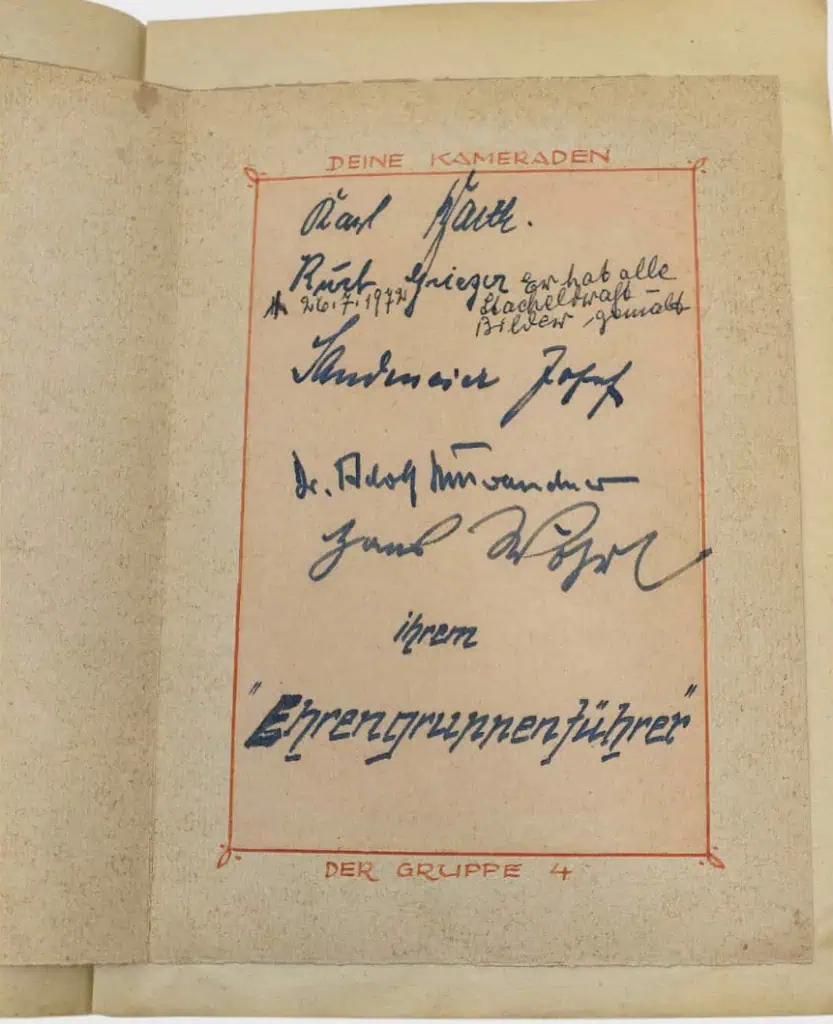 DEINE KAMERADEN
Karl
Kurt Grieger Er hat alle
26.7.1972 Stacheldraht-
Bilder gemalt
Sandmeier Josef
Dr. Adolf
Hans Wöhrl
ihrem
"Ehrengruppenführer"
DER GRUPPE 4